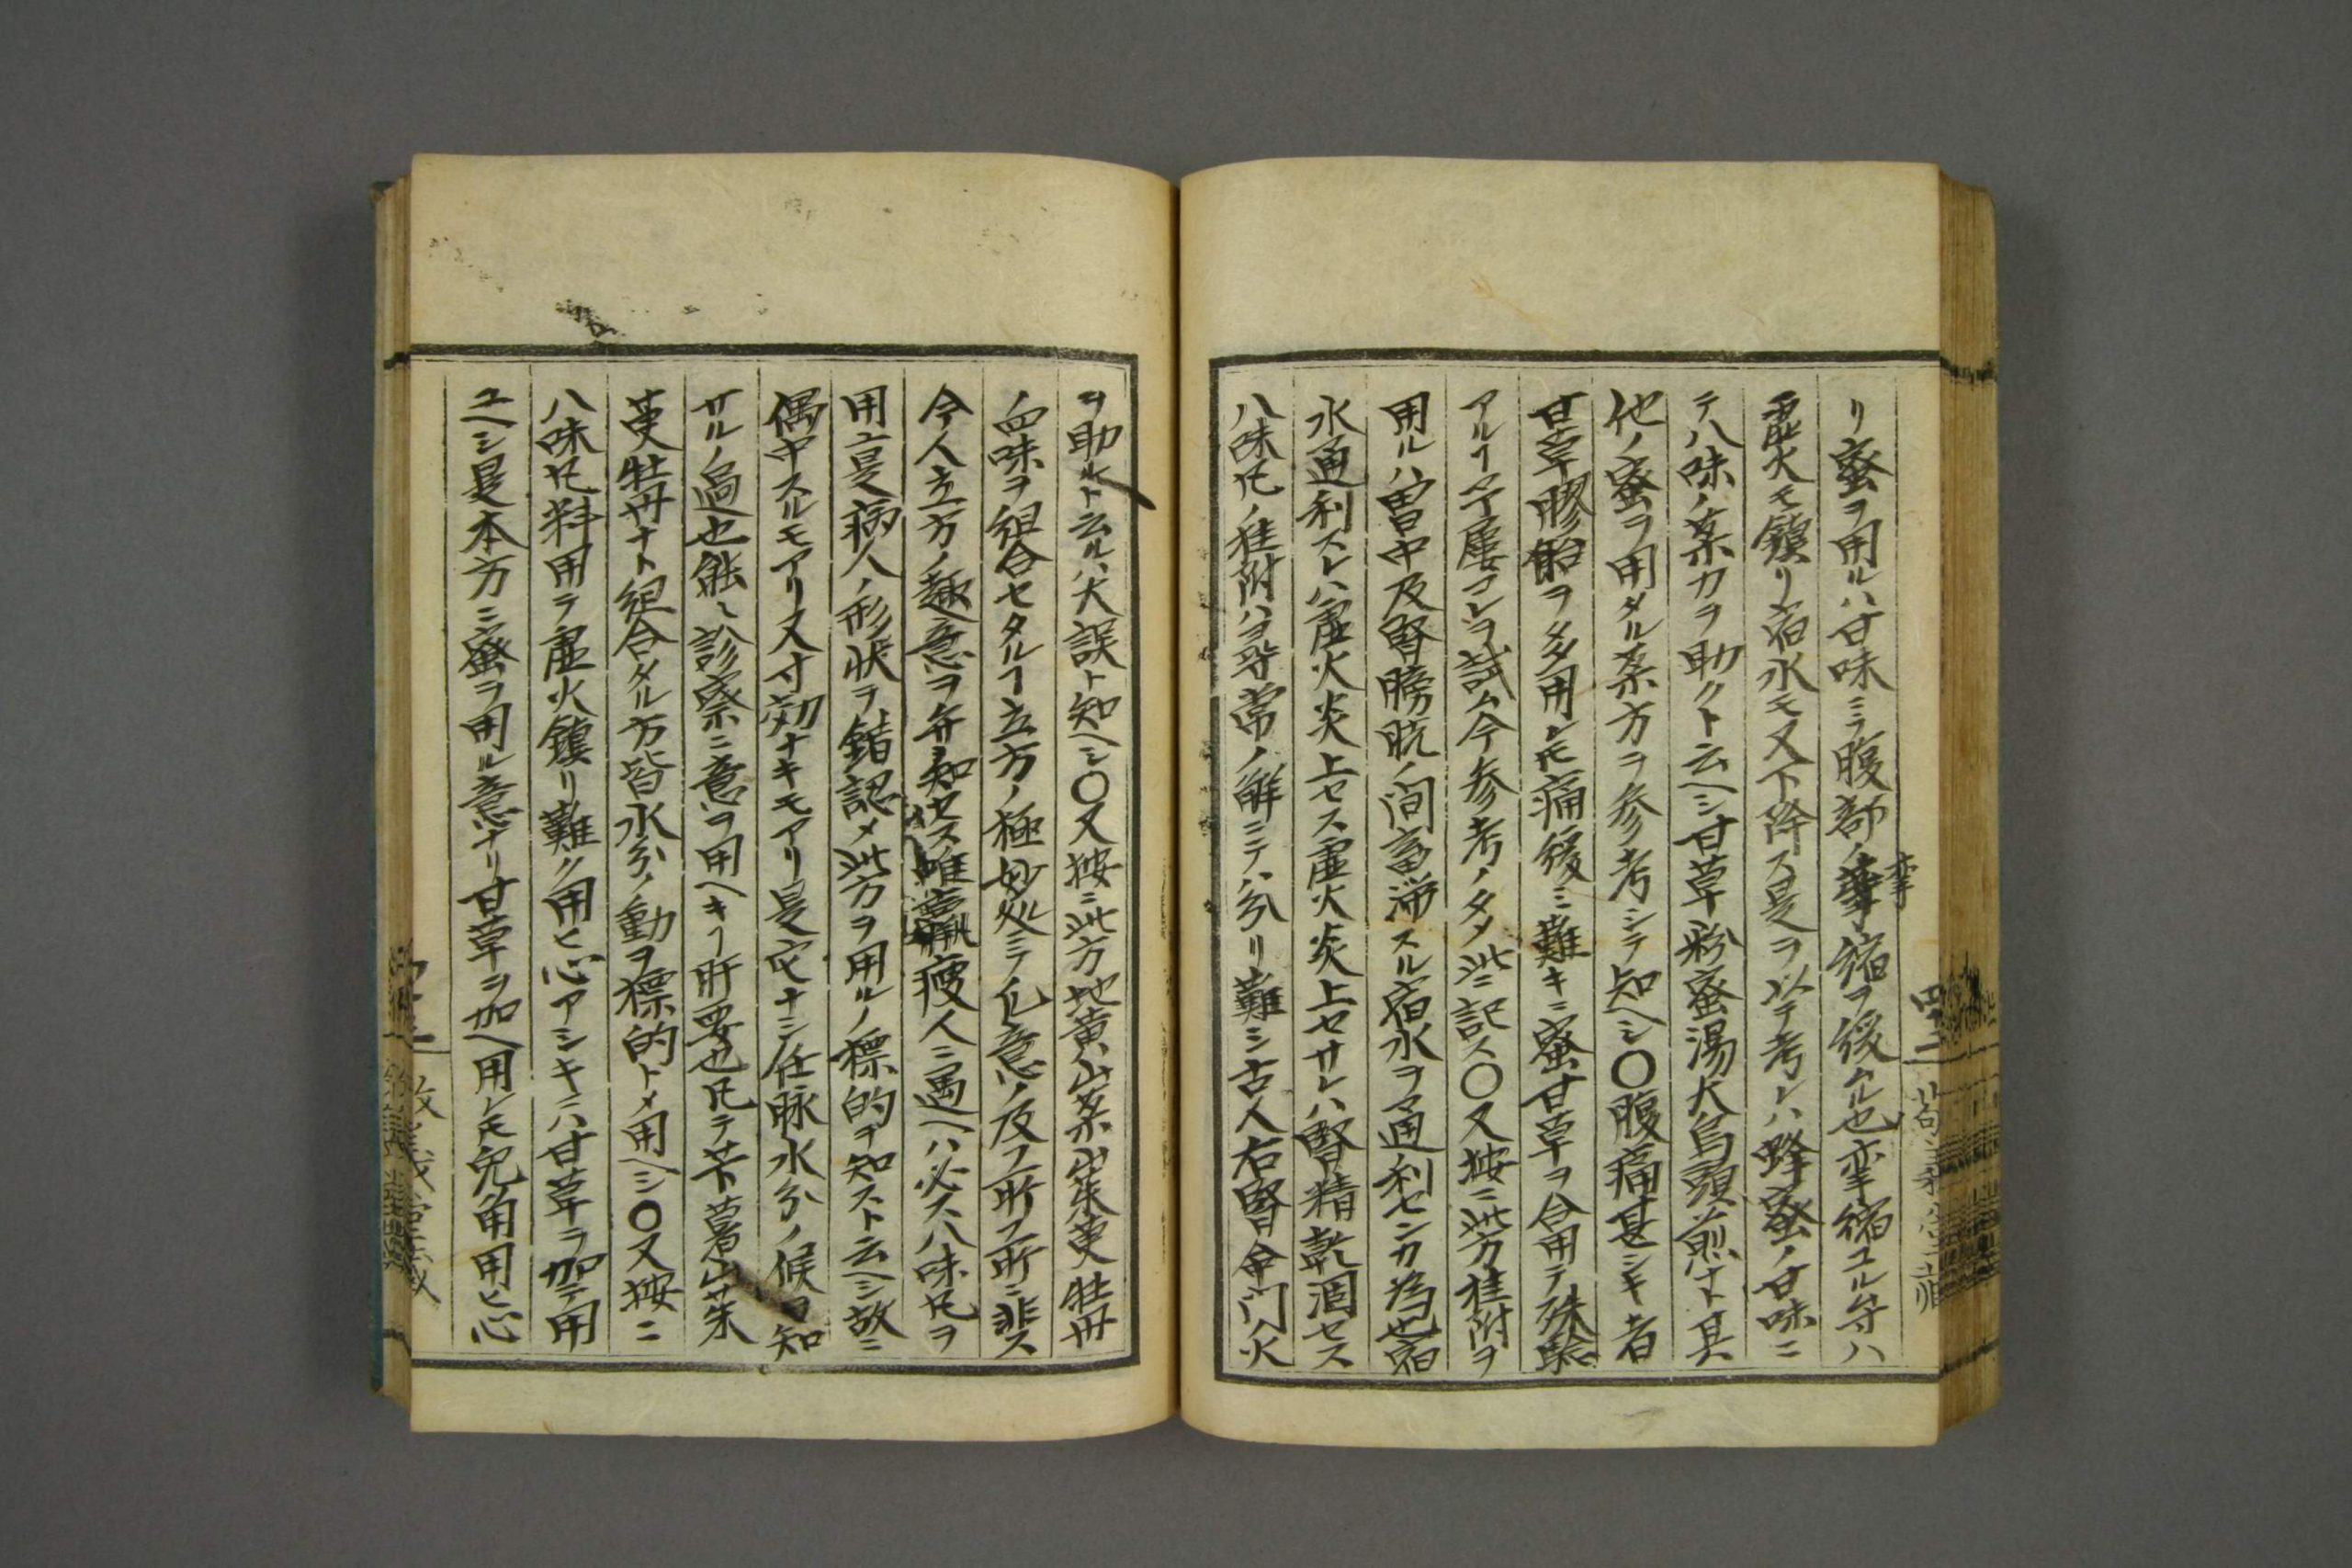 リ蜜ヲ用ルハ甘味ニテ腹部ノ攣縮ヲ緩ムル也攣縮ユル寸ハ
虚火モ鎮リ宿水モ又下降ス是ヲ以テ考レハ蜂蜜ノ甘味ニ
テ八味ノ薬力ヲ助クト云ヘシ甘草粉蜜湯大烏頭煎ナト其
他ノ蜜ヲ用タル薬方ヲ参考シテ知ヘシ〇腹痛甚シキ者
甘草膠飴ヲ多用レ𪜈痛緩ミ難キニ蜜甘草ヲ合用テ殊験
アルヿ屡コレヲ試ム今参考ノタメ此ニ記ス〇又按ニ此方桂附ヲ
用ルハ曽中及腎膀胱ノ間畜滞スル宿水ヲ通利センカ為也宿
水通利スレハ虚火炎上セス虚火炎上セサレハ腎精乾涸セス
八味丸ノ桂附ハ尋常ノ解ニテハ分リ難シ古人右腎命門ノ火
ヲ助ルト云ルハ大誤ト知ヘシ〇又按ニ此方地黄山薬山茱萸牡丹
ノ四味ヲ組合セタルヿ立方ノ極妙処ニテ凡意ノ及フ所フ所ニ非ス
今人立方ノ趣意ヲ弁ヨ知セス唯羸痩人ニ遇ヘハ必ス八味丸ヲ
用ユ是病人ノ形状ヲ錯認メ此方ヲ用ルノ標的ヲ知ストスヘシ故ニ
偶中スルモアリ又寸効ナキモアリ是定ナシ任脉水分ノ候ヲ知
サルノ過也能〻診察ニ意ヲ用ヘキヿ肝要也凡テ芐薯山茱
萸牡丹ナト組合タル方皆水分ノ動ヲ標的トメ用ヘシ〇又按ニ
八味丸料用ヲ虚火鎮リ難ク用ヒ心アシキニハ甘草ヲ加テ用
ユヘシ是本方ニ蜜ヲ用ル意ナリ甘草ヲ加ヘ用レ𪜈兎角用ヒ心